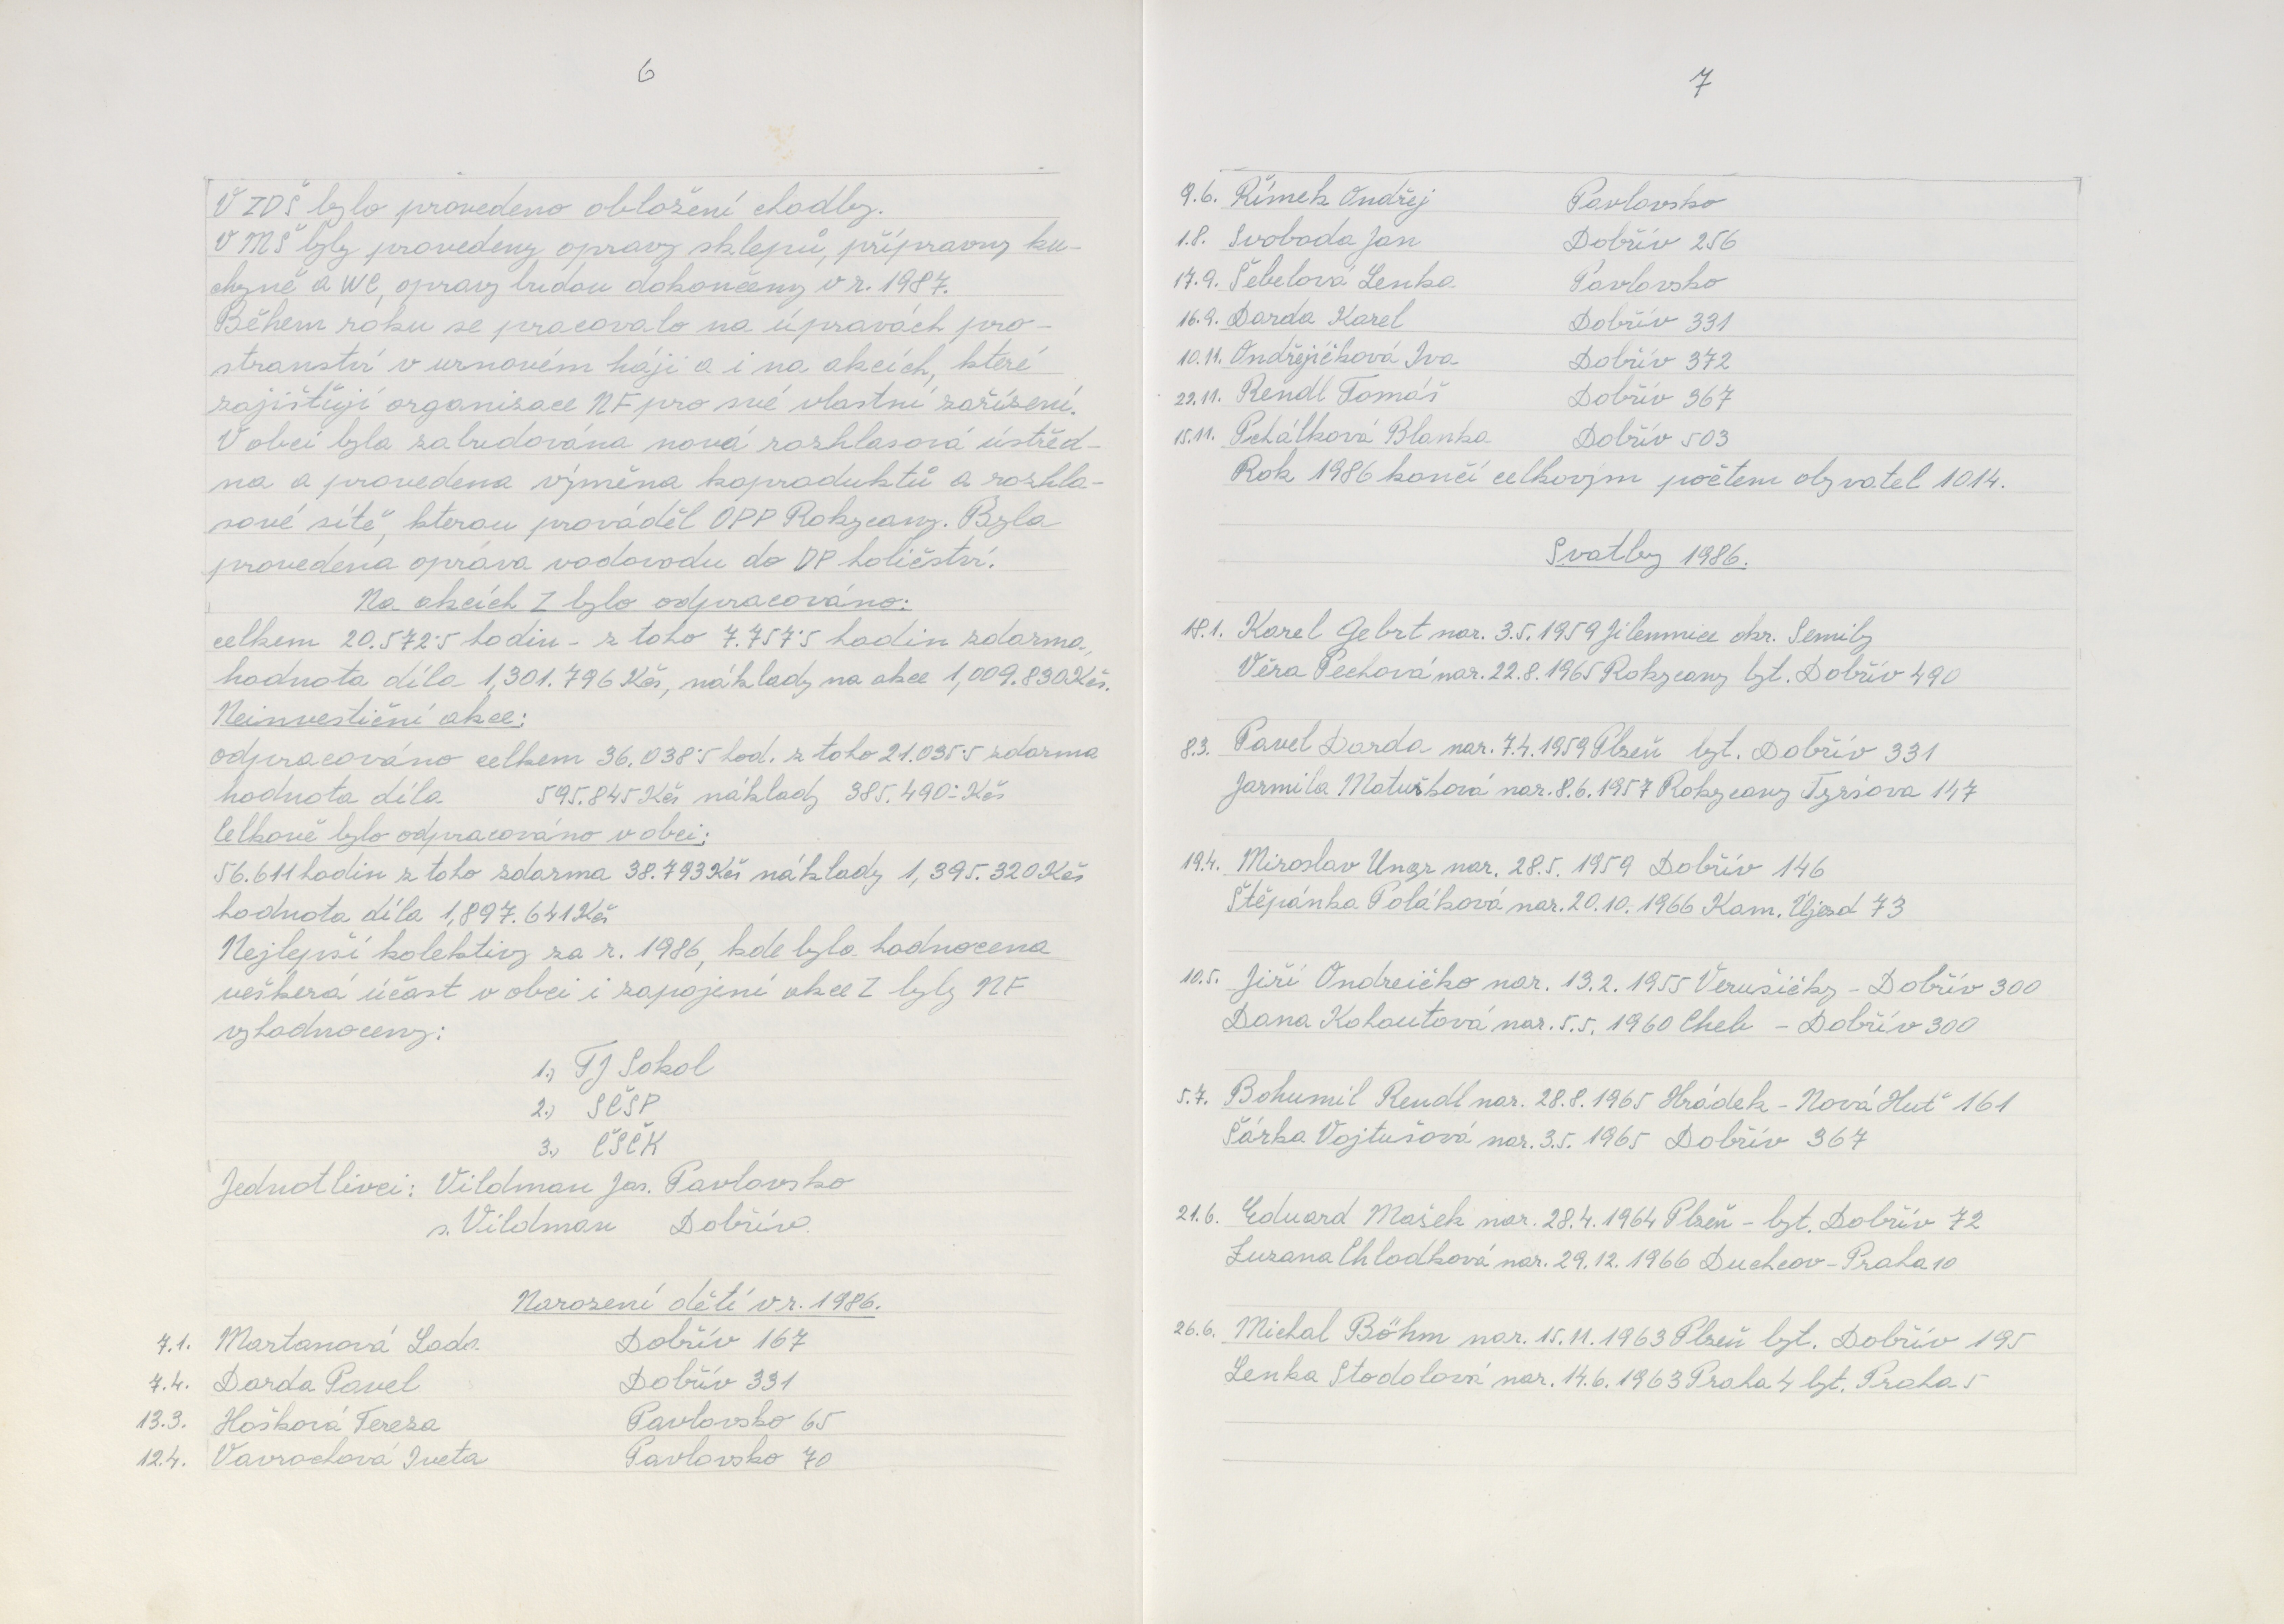 6
V ZDŠ bylo provedeno obložení chodby.
V MŠ byly provedeny opravy sklepů, přípravny ku-
chyně a WC, opravy budou dokončeny v r. 1987.
Během roku se pracovalo na úpravách pro-
stranství v urnovém háji a i na akcích, které
zajišťují organizace NF pro své vlastní zařízení.
V obci byla zabudována nová rozhlasová ústřed-
na a provedena výměna koproduktů a rozhla-
sové sítě, kterou prováděl OPP Rokycany. Byla
provedena oprava vodovodu do DP holičství.
Na akcích Z bylo odpracováno:
celkem 20.572·5 hodin - z toho 7.757·5 hodin zdarma,
hodnota díla 1,301.796 Kčs, náklady na akce 1,009.830 Kčs.
Neinvestiční akce:
odpracováno celkem 36.038·5 hod. z toho 21.035·5 zdarma
hodnota díla 595.845 Kčs náklady 385.490:- Kčs
Celkově bylo odpracováno v obci:
56.611 hodin z toho zdarma 38.793 Kčs náklady 1,395.320 Kčs
hodnota díla 1,897.641 Kčs
Nejlepší kolektivy za r. 1986, kde byla hodnocena
veškerá účast v obci i zapojení akce Z byly NF
vyhodnoceny:
1.) TJ Sokol
2.) SČSP
3.) ČSČK
Jednotlivci: Vildman Jas. Pavlovsko
s. Vildman Dobřív.
Narození dětí v r. 1986.
7.1. Martanová Lada Dobřív 167
7.4. Darda Pavel Dobřív 331
13.3. Hošková Tereza Pavlovsko 65
12.4. Vavrochová Iveta Pavlovsko 70
7
9.6. Římek Ondřej Pavlovsko
1.8. Svoboda Jan Dobřív 256
17.9. Šebelová Lenka Pavlovsko
16.9. Darda Karel Dobřív 331
10.11. Ondřejíčková Iva Dobřív 372
22.11. Rendl Tomáš Dobřív 367
15.11. Pchálková Blanka Dobřív 503
Rok 1986 končí celkovým počtem obyvatel 1014.
Svatby 1986.
18.1. Karel Gebrt nar. 3.5.1959 Jilemnice okr. Semily
Věra Pechová nar. 22.8.1965 Rokycany byt. Dobřív 490
8.3. Pavel Darda nar. 7.4.1959 Plzeň byt. Dobřív 331
Jarmila Matušková nar. 8.6.1957 Rokycany Tyršova 147
19.4. Miroslav Ungr nar. 28.5.1959 Dobřív 146
Štěpánka Poláková nar. 20.10.1966 Kam. Újezd 73
10.5. Jiří Ondreičko nar. 13.2.1955 Verušičky - Dobřív 300
Dana Kohoutová nar. 5.5.1960 Cheb - Dobřív 300
5.7. Bohumil Rendl nar. 28.8.1965 Hrádek - Nová Huť 161
Šárka Vojtušová nar. 3.5.1965 Dobřív 367
21.6. Eduard Mašek nar. 28.4.1964 Plzeň - byt. Dobřív 72
Zuzana Chladková nar. 29.12.1966 Duchcov - Praha 10
26.6. Michal Böhm nar. 15.11.1963 Plzeň byt. Dobřív 195
Lenka Stodolová nar. 14.6.1963 Praha 4 byt. Praha 5